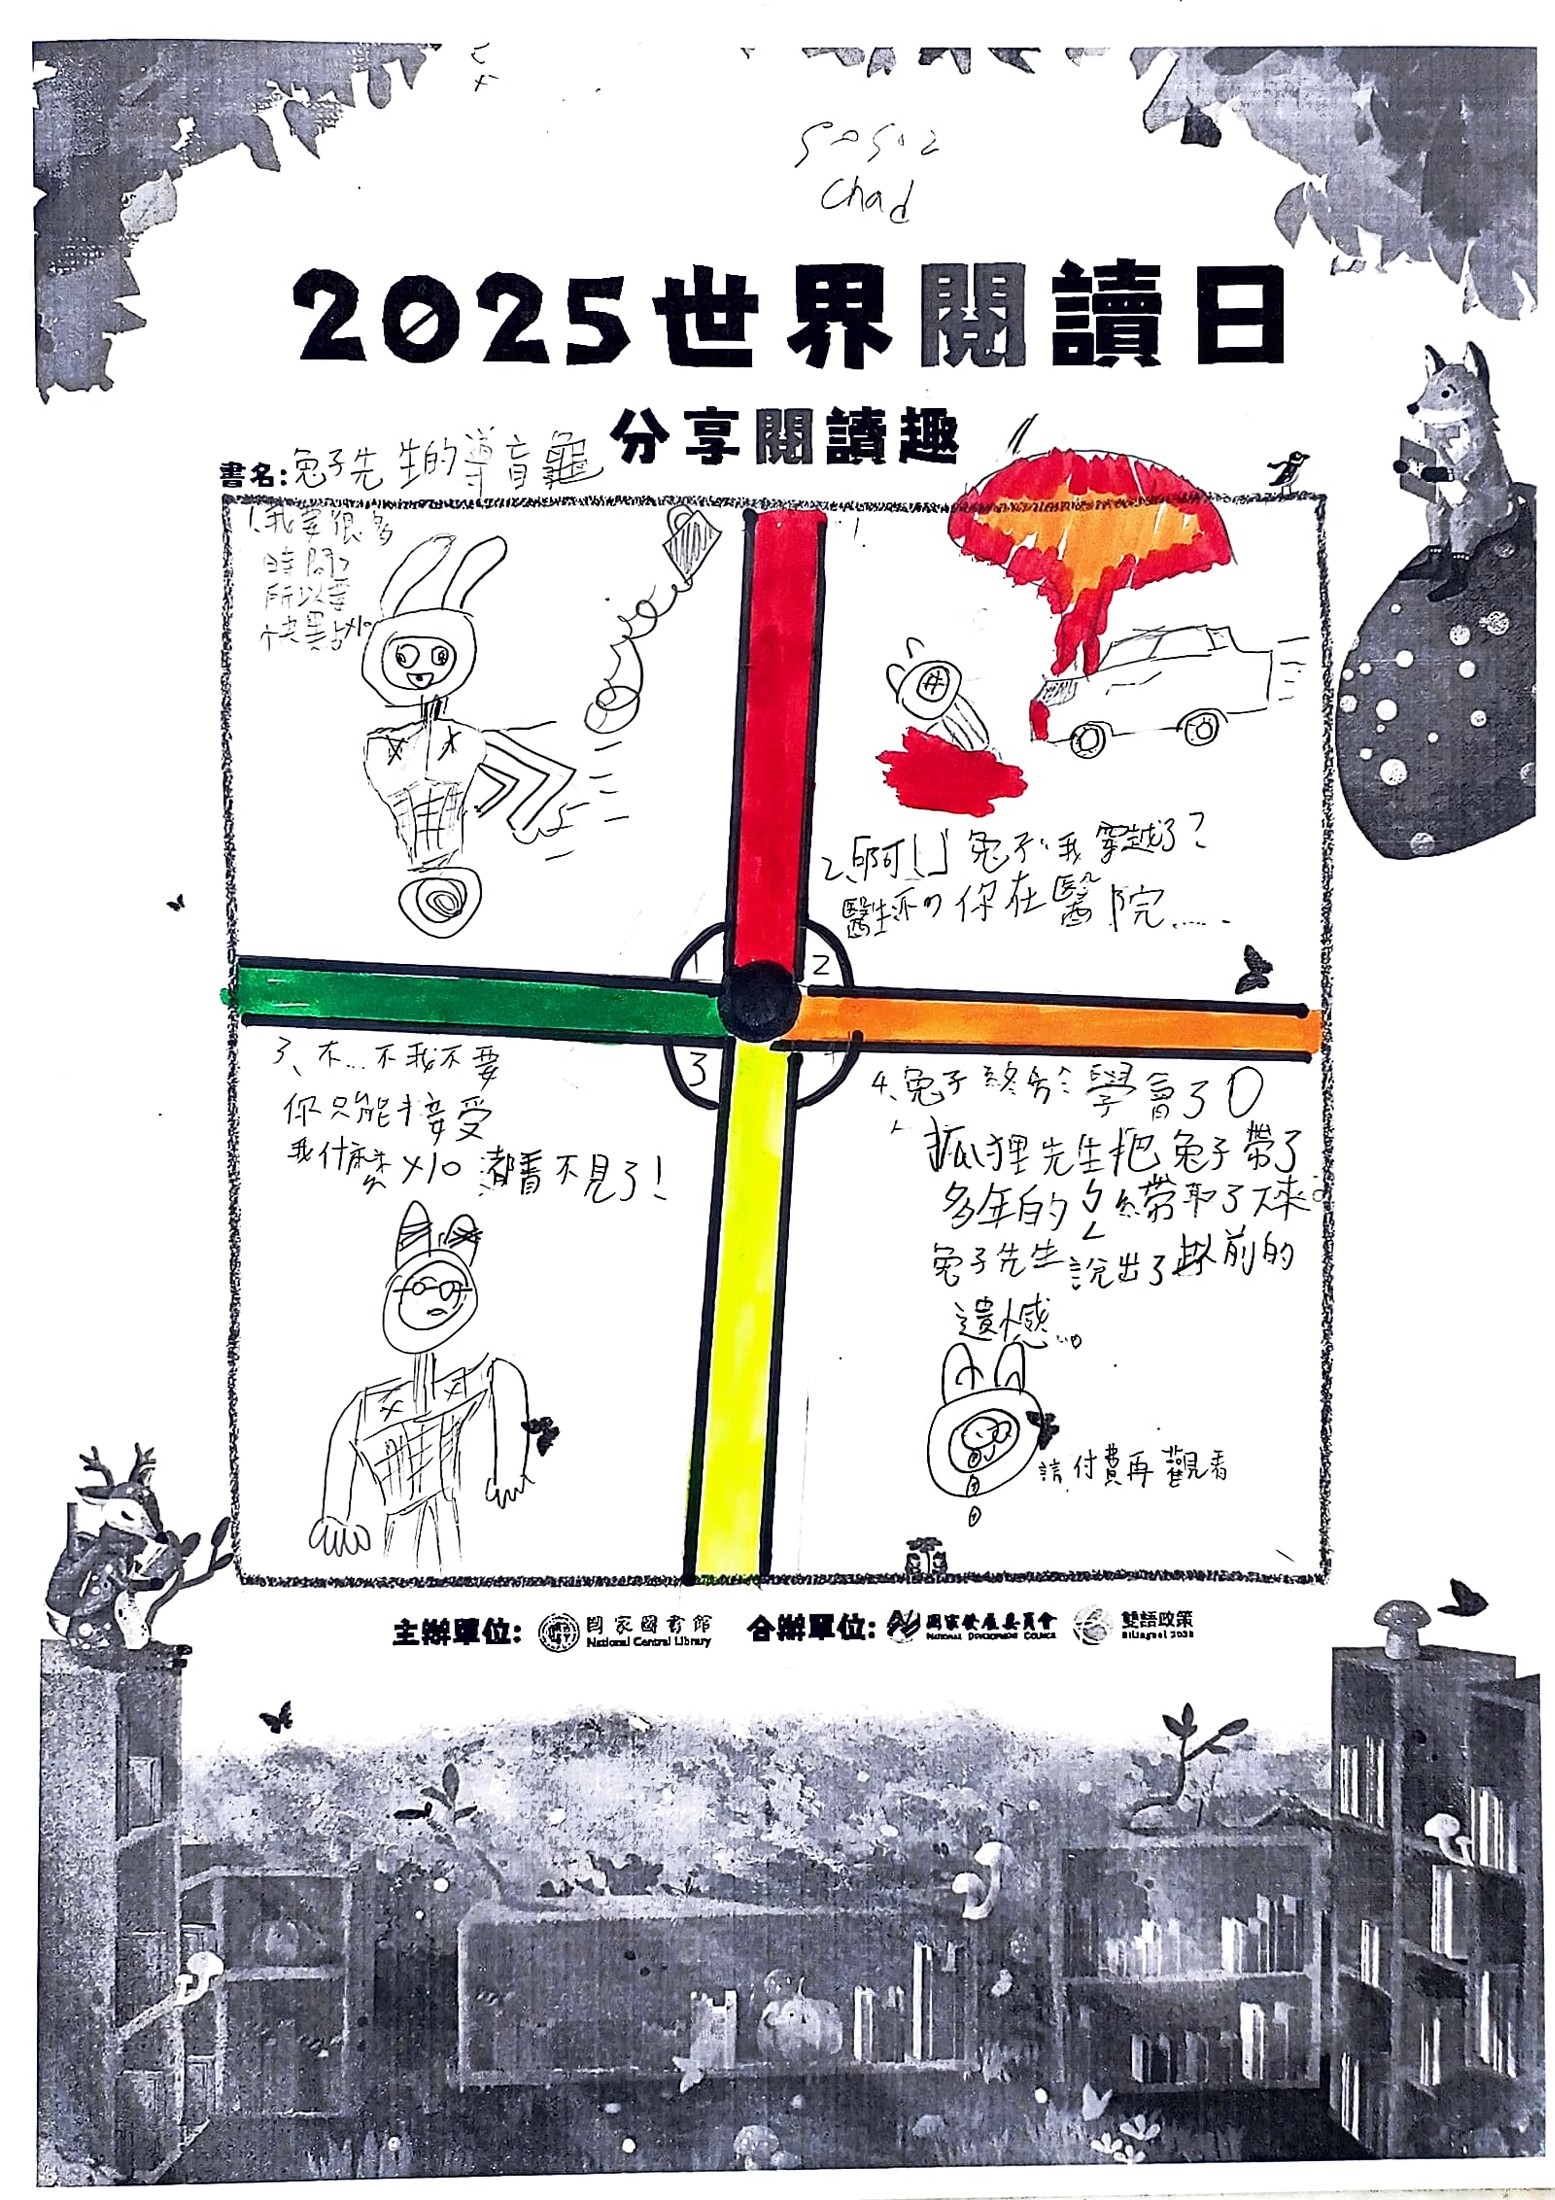 Chad
2025世界閱讀日
分享閱讀趣
書名:兔子先生的導盲龜
1.我要很多
時間
所以要
快點x10
2、「啊!」兔子:我穿越了?
醫生:你在醫院......
1
2
3
3、不...不我不要
你只能接受
我什麼x10都看不見了!
4、兔子終於學會了
狐狸先生把兔子帶了
多年的ㄅㄥ帶取了下來。
兔子先生說出了以前的
遺憾...。
請付費再觀看
主辦單位: 國家圖書館 National Central Library 合辦單位: 國家發展委員會 NATIONAL DEVELOPMENT COUNCIL 雙語政策 Bilingual 2030